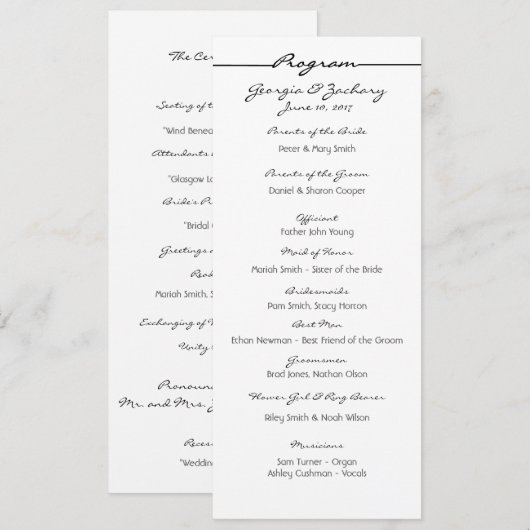 Program
Georgia & Zachary
June 10, 2017
Parents of the Bride
Peter & Mary Smith
Parents of the Groom
Daniel & Sharon Cooper
Officiant
Father John Young
Maid of Honor
Mariah Smith - Sister of the Bride
Bridesmaids
Pam Smith, Stacy Horton
Best Man
Ethan Newman - Best Friend of the Groom
Groomsmen
Brad Jones, Nathan Olson
Flower Girl & Ring Bearer
Riley Smith & Noah Wilson
Musicians
Sam Turner - Organ
Ashley Cushman - Vocals
The Cer
Seating of the
"Wind Benea
Attendants
"Glasgow Lo
Bride's P
"Bridal
Greetings a
Rea
Mariah Smith, S
Exchanging of
Unity
Pronoun
Mr. and Mrs.
Reces
"Wedding